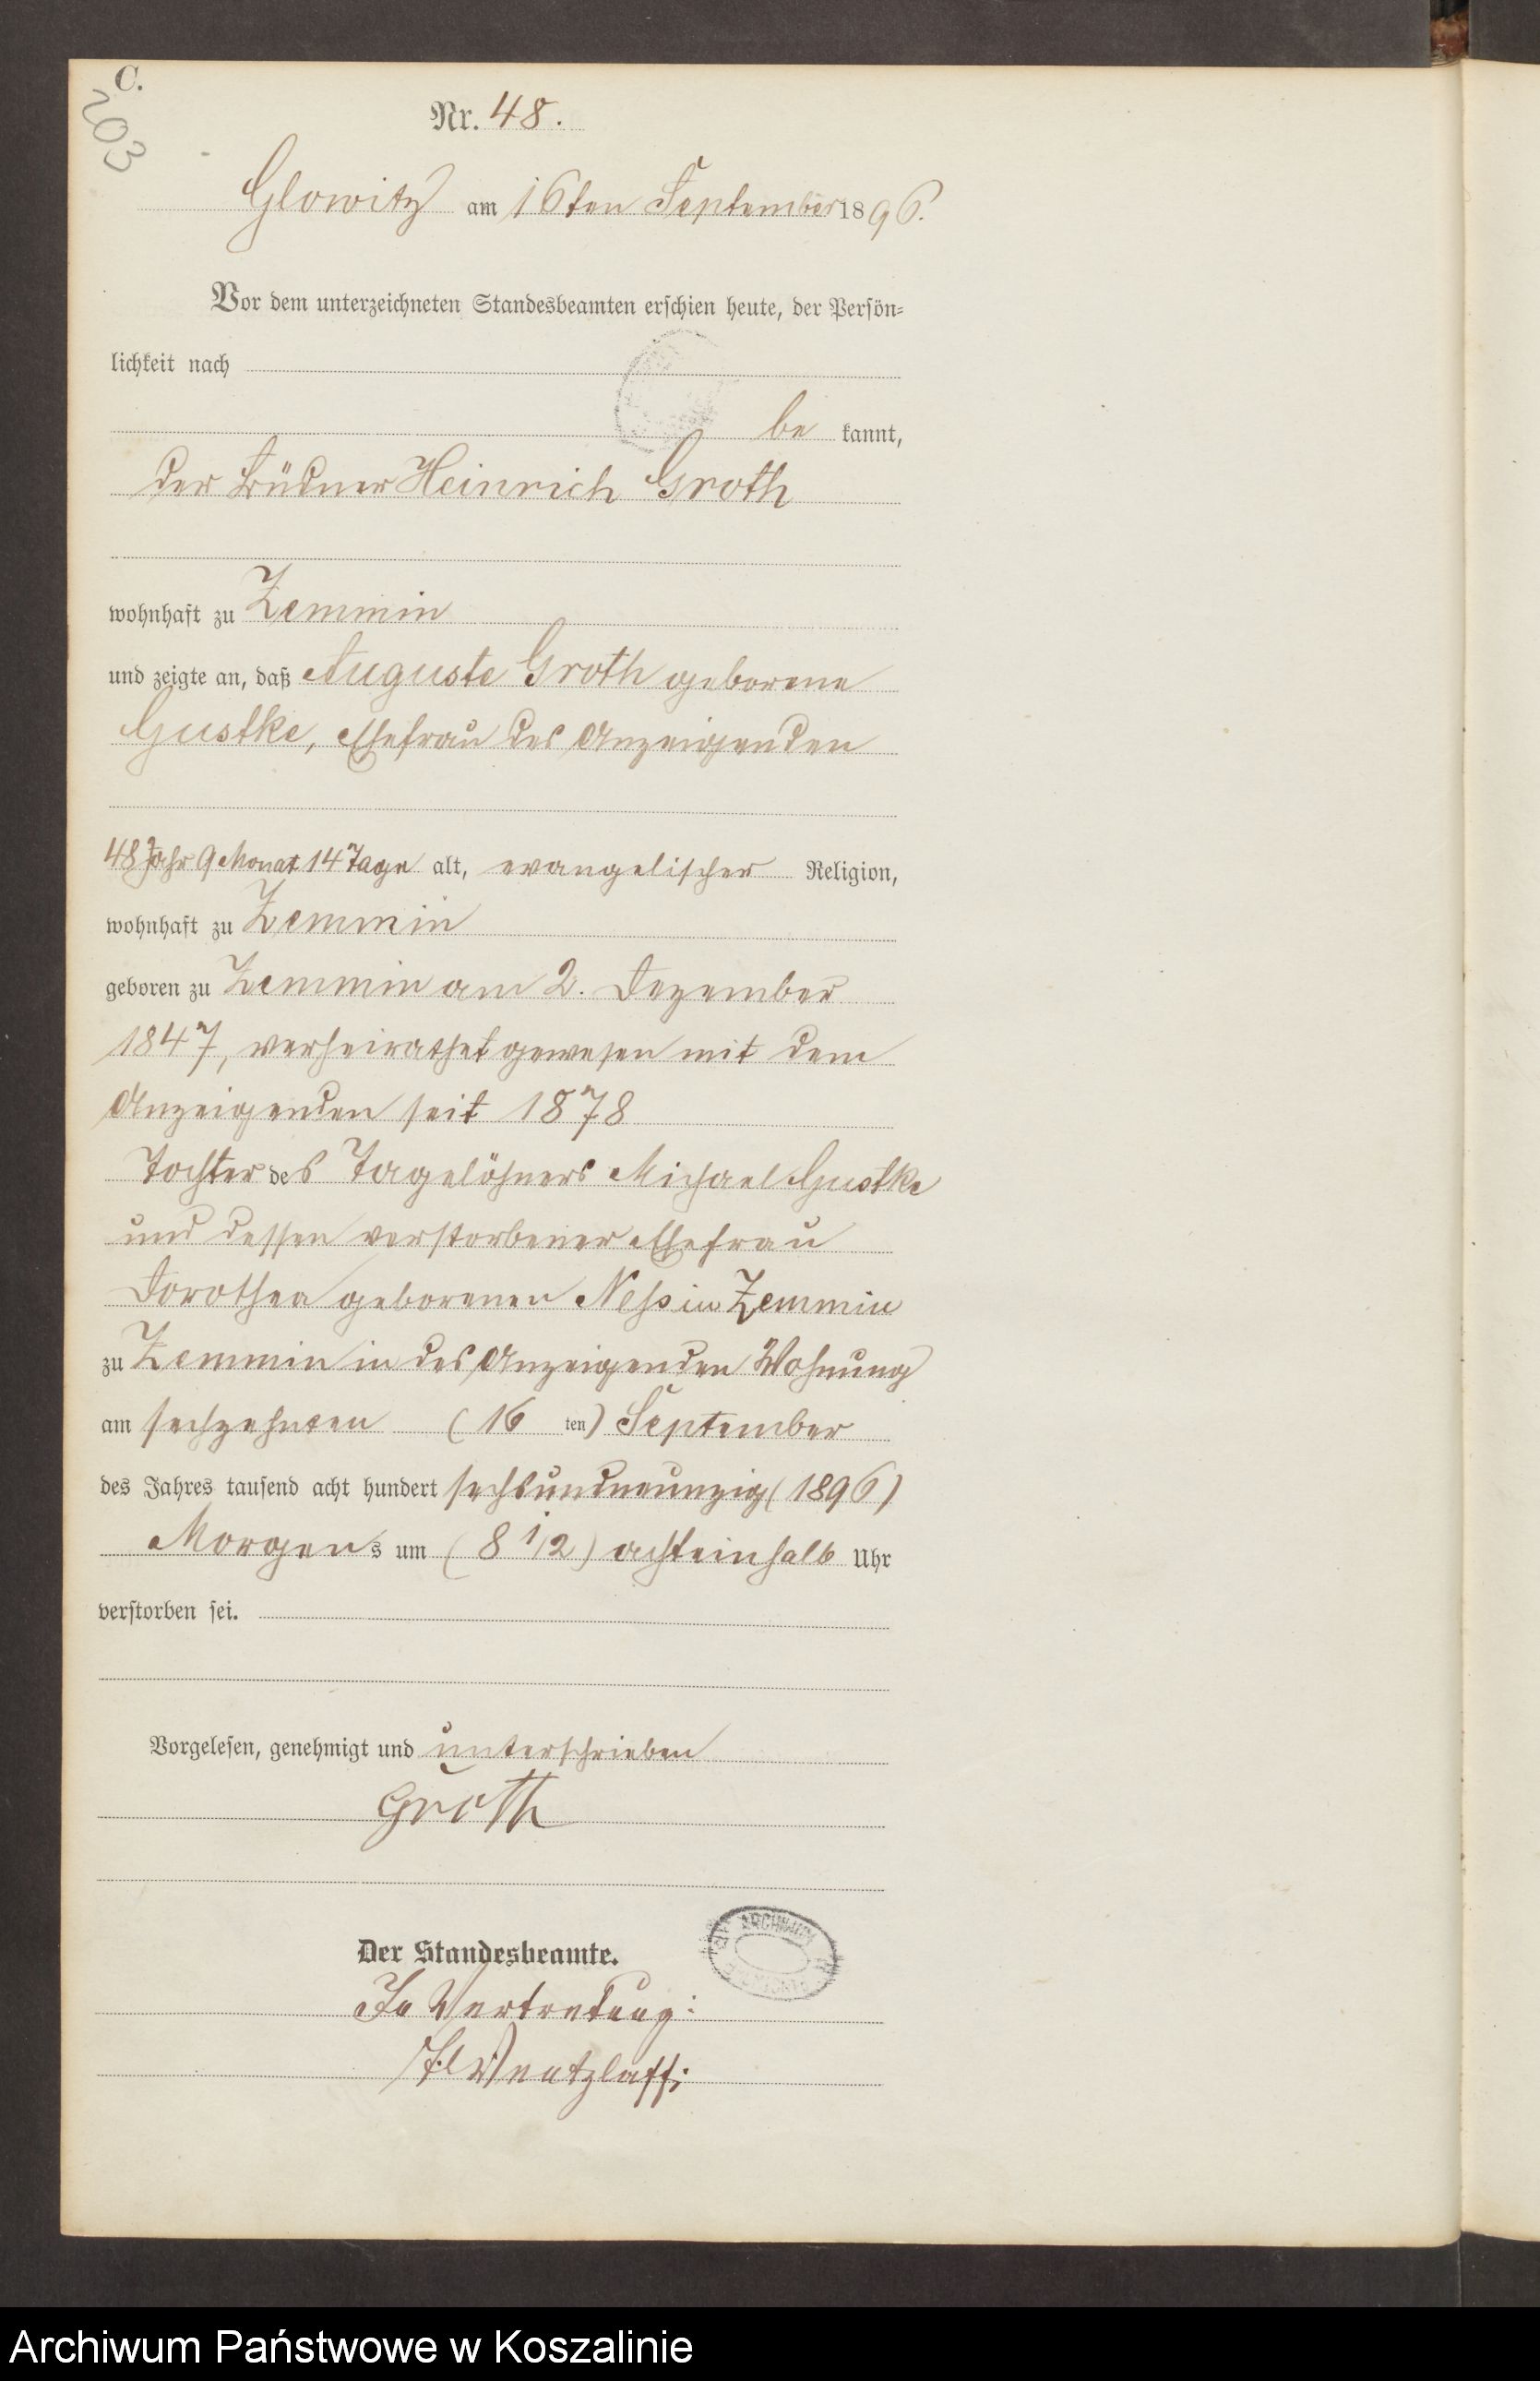 C.
203
Nr. 48.
Glowitz am 16ten September 1896.
Vor dem unterzeichneten Standesbeamten erschien heute, der Persön-
lichkeit nach
be kannt,
der Büdner Heinrich Groth
wohnhaft zu Zemmin
und zeigte an, daß Auguste Groth geborene
Gustke, Ehefrau des Anzeigenden
48 Jahr 9 Monat 14 Tage alt, evangelischer Religion,
wohnhaft zu Zemmin
geboren zu Zemmin am 2. Dezember
1847, verheirathet gewesen mit dem
Anzeigenden seit 1878
Tochter des Tagelöhners Michael Gustke
und dessen verstorbener Ehefrau
Dorothea geborenen Neß in Zemmin
zu Zemmin in des Anzeigenden Wohnung
am sechzehnten (16 ten) September
des Jahres tausend acht hundert sechsundneunzig (1896)
Morgens um (8 1/2) achteinhalb Uhr
verstorben sei.
Vorgelesen, genehmigt und unterschrieben
Groth
ARCHIWUM
Der Standesbeamte.
In Vertretung:
Wentzlaff.
Archiwum Państwowe w Koszalinie